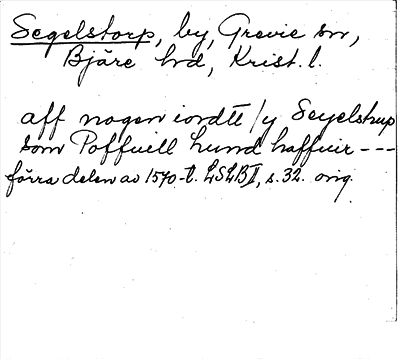 Segelstorp, by, Grevie sn,
Bjäre hd, Krist. l.
aff nogen iordtt /y Seyelstrup
som Poffuell hund haffuir ---
förra delen av 1570-t. LSLB II, s. 32. orig.